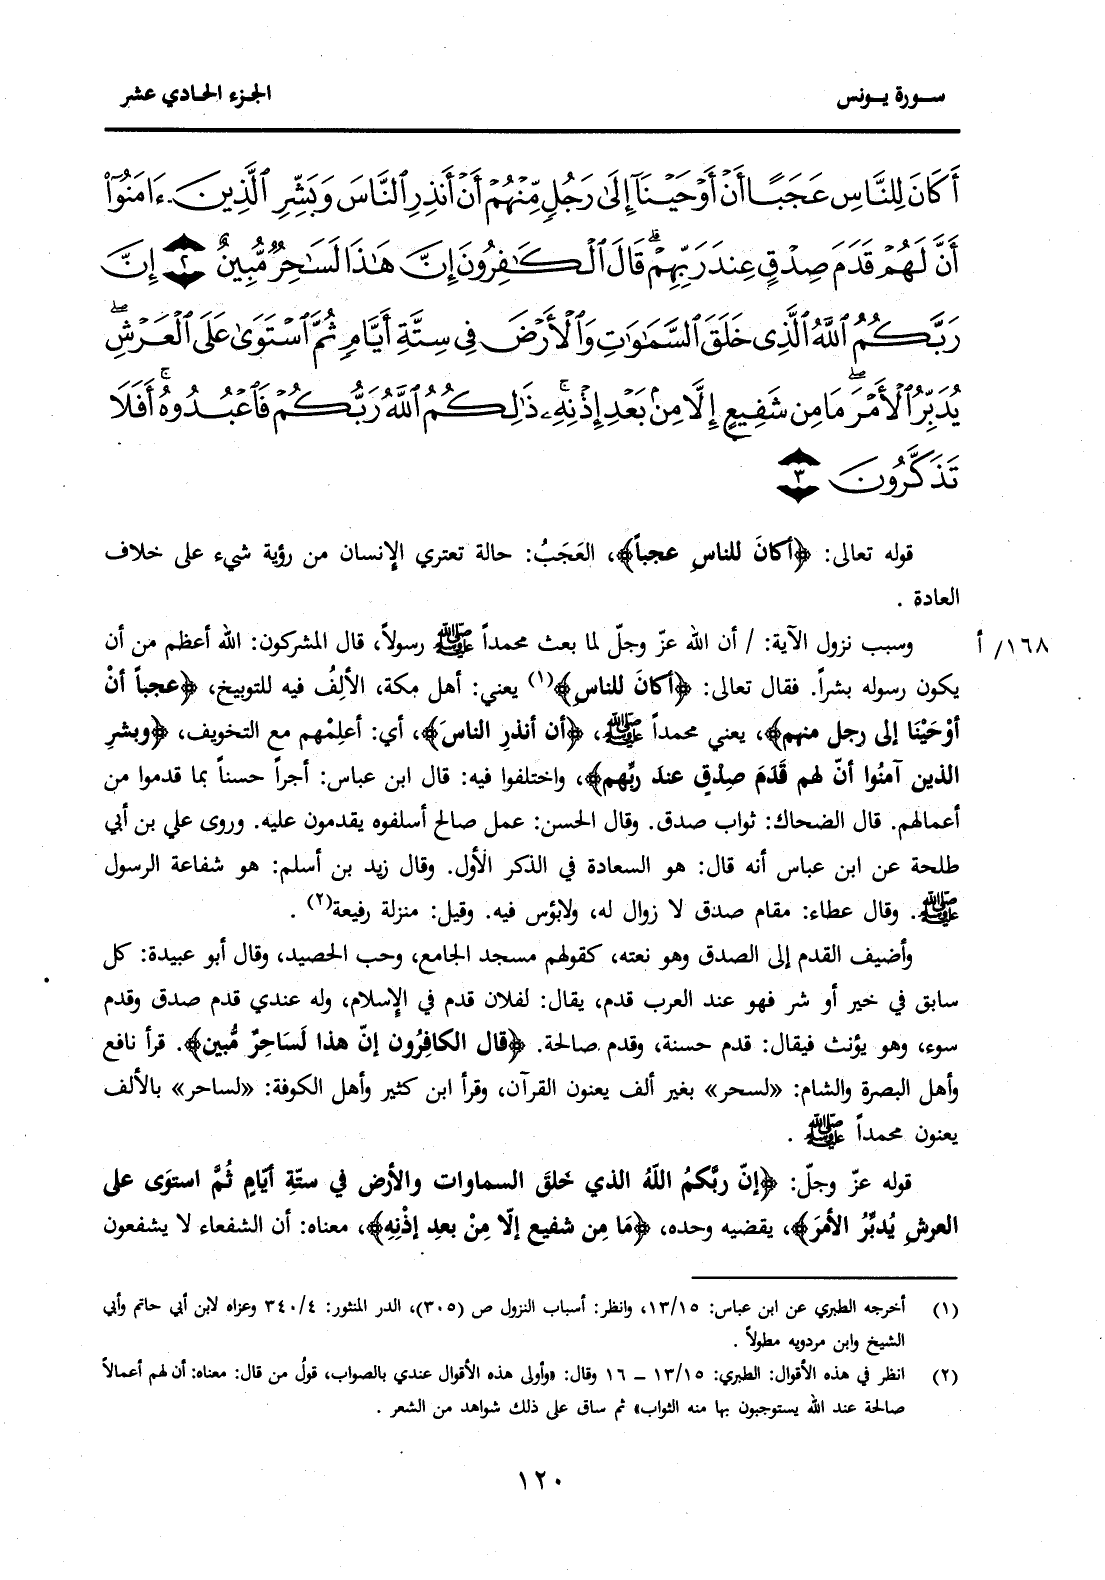 سورة يونس
الجزء الحادي عشر
أَكَانَ لِلنَّاسِ عَجَبًا أَنْ أَوْحَيْنَآ إِلَىٰ رَجُلٍ مِّنْهُمْ أَنْ أَنذِرِ ٱلنَّاسَ وَبَشِّرِ ٱلَّذِينَ ءَامَنُوٓا۟
أَنَّ لَهُمْ قَدَمَ صِدْقٍ عِندَ رَبِّهِمْ ۗ قَالَ ٱلْكَـٰفِرُونَ إِنَّ هَـٰذَا لَسَـٰحِرٌ مُّبِينٌ ٢ إِنَّ
رَبَّكُمُ ٱللَّهُ ٱلَّذِى خَلَقَ ٱلسَّمَـٰوَٰتِ وَٱلْأَرْضَ فِى سِتَّةِ أَيَّامٍ ثُمَّ ٱسْتَوَىٰ عَلَى ٱلْعَرْشِ ۖ
يُدَبِّرُ ٱلْأَمْرَ ۖ مَا مِن شَفِيعٍ إِلَّا مِنۢ بَعْدِ إِذْنِهِۦ ۚ ذَٰلِكُمُ ٱللَّهُ رَبُّكُمْ فَٱعْبُدُوهُ ۚ أَفَلَا
تَذَكَّرُونَ ٣
قوله تعالى: ﴿أكانَ للناسِ عجباً﴾، العَجَبُ: حالة تعتري الإنسان من رؤية شيء على خلاف
العادة .
١٦٨/ أ وسبب نزول الآية: / أن الله عزّ وجلّ لما بعث محمداً ﷺ رسولاً، قال المشركون: الله أعظم من أن
يكون رسوله بشراً. فقال تعالى: ﴿أكانَ للناسِ﴾(١) يعني: أهل مكة، الألِفُ فيه للتوبيخ، ﴿عجباً أنْ
أوْحَيْنَا إلى رجل منهم﴾، يعني محمداً ﷺ، ﴿أن أنذرِ الناسَ﴾، أي: أعلِمْهم مع التخويف، ﴿وبشرِ
الذين آمنُوا أنّ لهم قَدَمَ صِدْقٍ عندَ ربِّهم﴾، واختلفوا فيه: قال ابن عباس: أجراً حسناً بما قدموا من
أعمالهم. قال الضحاك: ثواب صدق. وقال الحسن: عمل صالح أسلفوه يقدمون عليه. وروى علي بن أبي
طلحة عن ابن عباس أنه قال: هو السعادة في الذكر الأول. وقال زيد بن أسلم: هو شفاعة الرسول
ﷺ. وقال عطاء: مقام صدق لا زوال له، ولابؤس فيه. وقيل: منزلة رفيعة(٢) .
وأضيف القدم إلى الصدق وهو نعته، كقولهم مسجد الجامع، وحب الحصيد، وقال أبو عبيدة: كل
سابق في خير أو شر فهو عند العرب قدم، يقال: لفلان قدم في الإسلام، وله عندي قدم صدق وقدم
سوء، وهو يؤنث فيقال: قدم حسنة، وقدم صالحة. ﴿قال الكافِرُون إنّ هذا لَسَاحِرٌ مُّبين﴾. قرأ نافع
وأهل البصرة والشام: «لسحر» بغير ألف يعنون القرآن، وقرأ ابن كثير وأهل الكوفة: «لساحر» بالألف
يعنون محمداً ﷺ .
قوله عزّ وجلّ: ﴿إنّ ربَّكمُ اللّهُ الذي خَلقَ السماوات والأرض في ستّةِ أيّامٍ ثُمَّ استوَى على
العرشِ يُدبِّرُ الأمرَ﴾، يقضيه وحده، ﴿مَا مِن شفيع إلّا مِنْ بعدِ إذْنِهِ﴾، معناه: أن الشفعاء لا يشفعون
(١) أخرجه الطبري عن ابن عباس: ١٣/١٥، وانظر: أسباب النزول ص (٣٠٥)، الدر المنثور: ٣٤٠/٤ وعزاه لابن أبي حاتم وأبي
الشيخ وابن مردويه مطولاً .
(٢) انظر في هذه الأقوال: الطبري: ١٣/١٥ – ١٦ وقال: «وأولى هذه الأقوال عندي بالصواب، قولُ من قال: معناه: أن لهم أعمالاً
صالحة عند الله يستوجبون بها منه الثواب» ثم ساق على ذلك شواهد من الشعر .
١٢٠